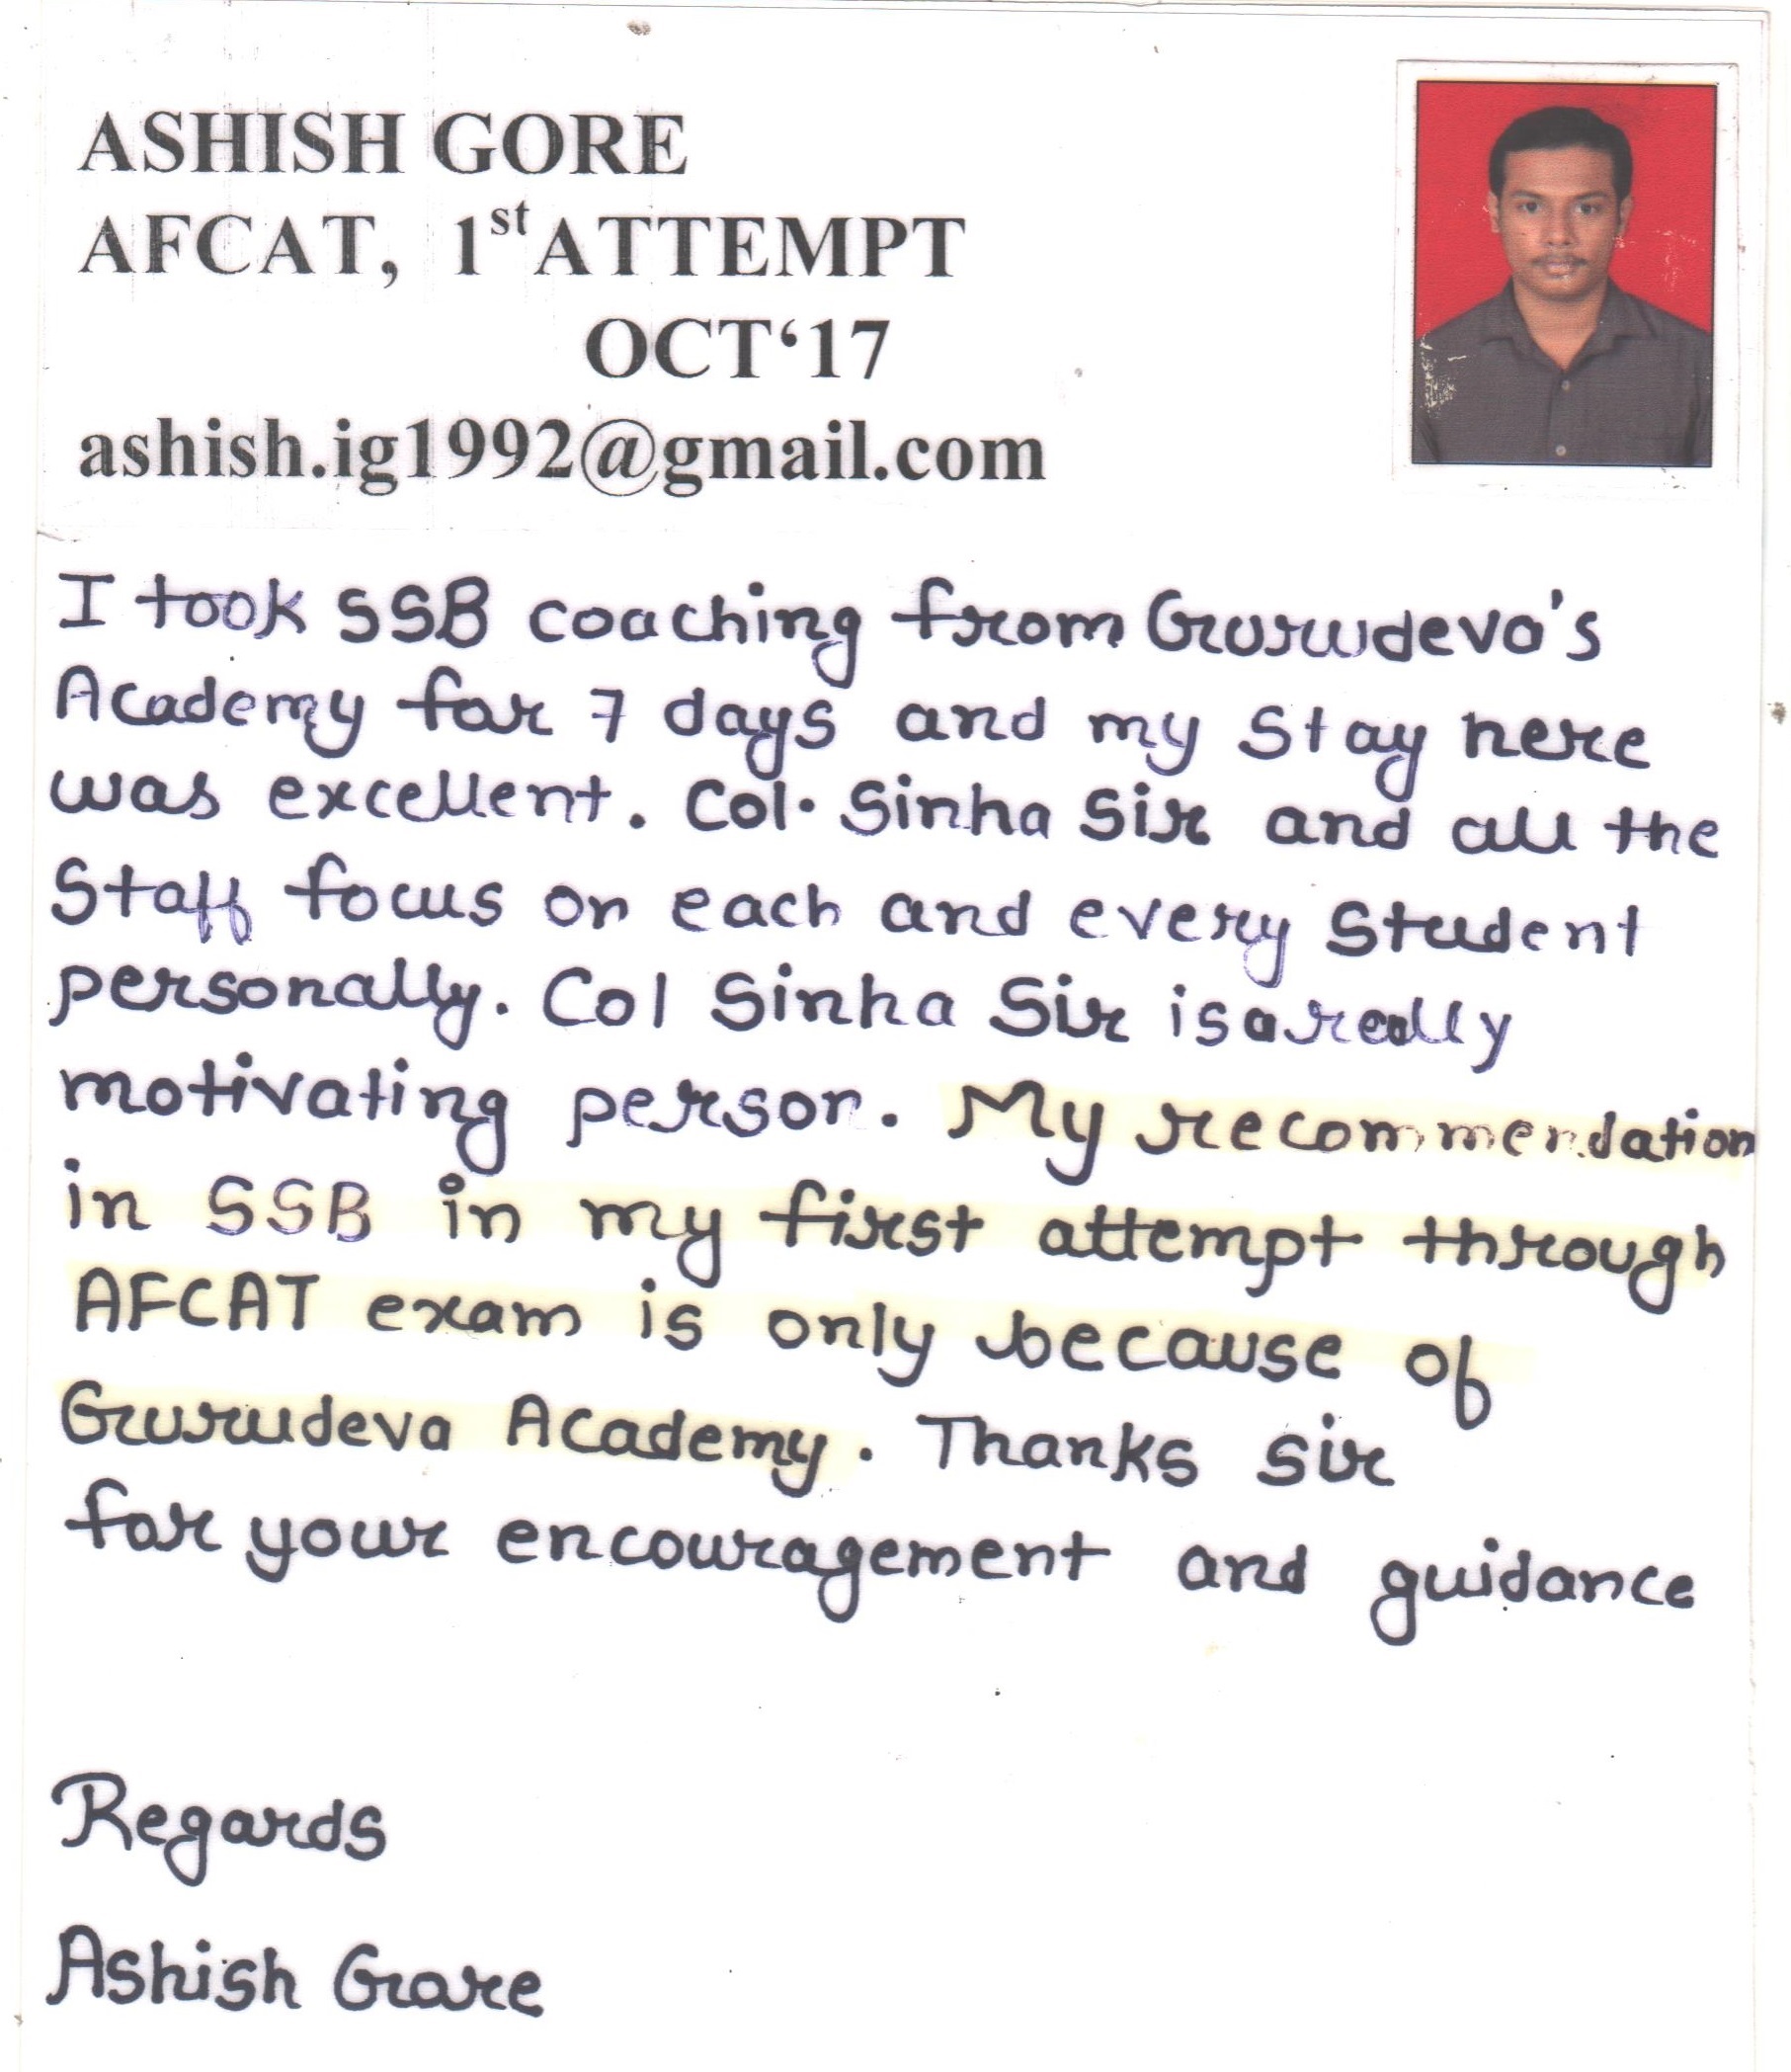 ASHISH GORE
AFCAT, 1st ATTEMPT
OCT‘17
ashish.ig1992@gmail.com
I took SSB coaching from Gurudeva's
Academy for 7 days and my stay here
was excellent. Col. Sinha Sir and all the
Staff focus on each and every Student
personally. Col Sinha Sir is a really
motivating person. My recommendation
in SSB in my first attempt through
AFCAT exam is only because of
Gurudeva Academy. Thanks sir
for your encouragement and guidance
Regards
Ashish Gore